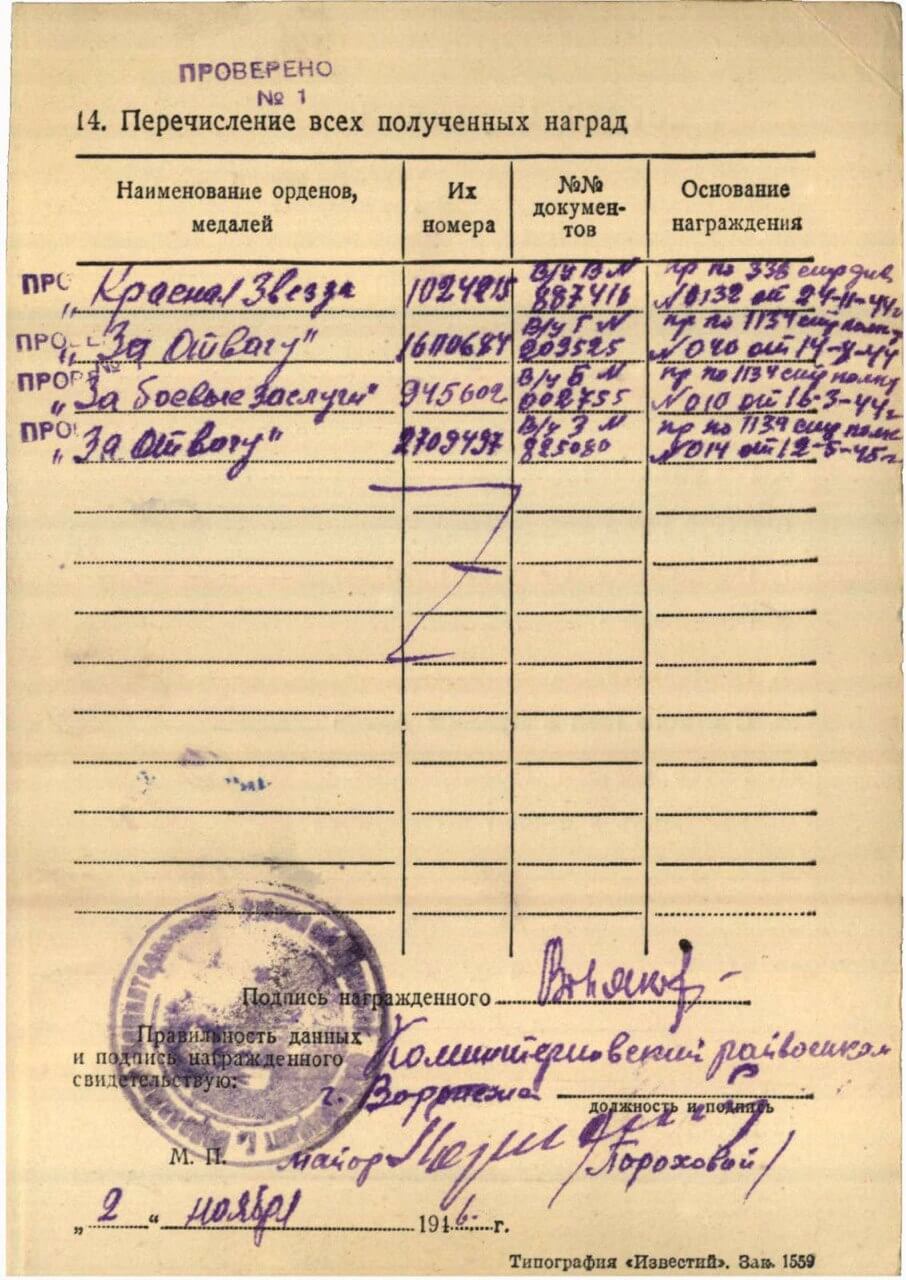 ПРОВЕРЕНО
№ 1
14. Перечисление всех полученных наград
Наименование орденов, медалей
Их номера
№№ докумен-тов
Основание награждения
ПРО
„Красная Звезда 1024215 В/ч В № 887416 пр по 338 стр див № 0132 от 24-11-44г
ПРОВЕ
„За Отвагу" 1600684 В/ч Г № 203525 пр по 1134 стр полку № 040 от 14-8-44
ПРОВЕ № 1
„За боевые заслуги" 945602 В/ч Б № 002755 пр по 1134 стр полку № 010 от 16-3-44г
ПРО
„За Отвагу" 2709497 В/ч З № 825080 пр по 1134 стр полку № 014 от 12-5-45г
Подпись награжденного
Правильность данных
и подпись награжденного Коминтерновский райвоенком
свидетельствую: г. Воронежа
должность и подпись
М. П. майор /Пороховой/
„2" ноября 1946 г.
Типография «Известий». Зак. 1559